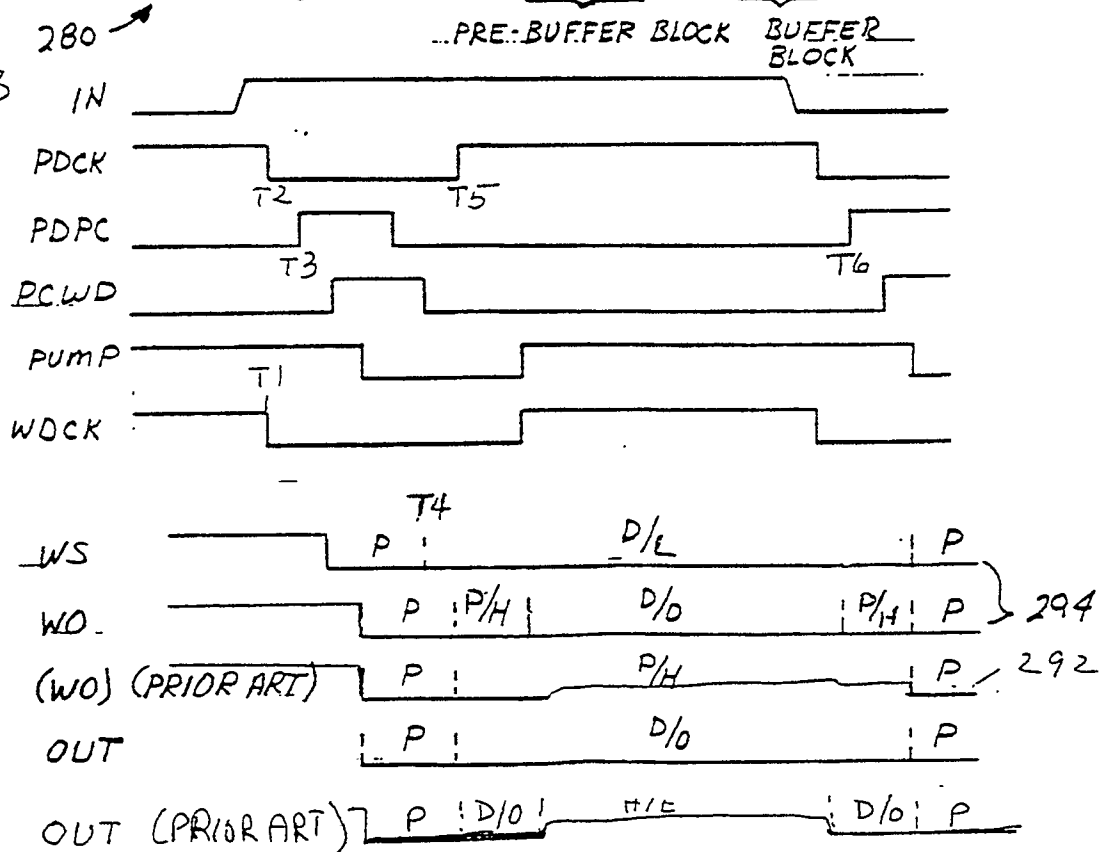 280
PRE-BUFFER BLOCK BUFFER BLOCK
3
IN
PDCK
T2 T5
PDPC
T3 T6
PCWD
PUMP
T1
WDCK
T4
WS P D/L P
WO P P/H D/O P/H P 294
(WO) (PRIOR ART) P P/H P 292
OUT P D/O P
OUT (PRIOR ART) P D/O D/O P